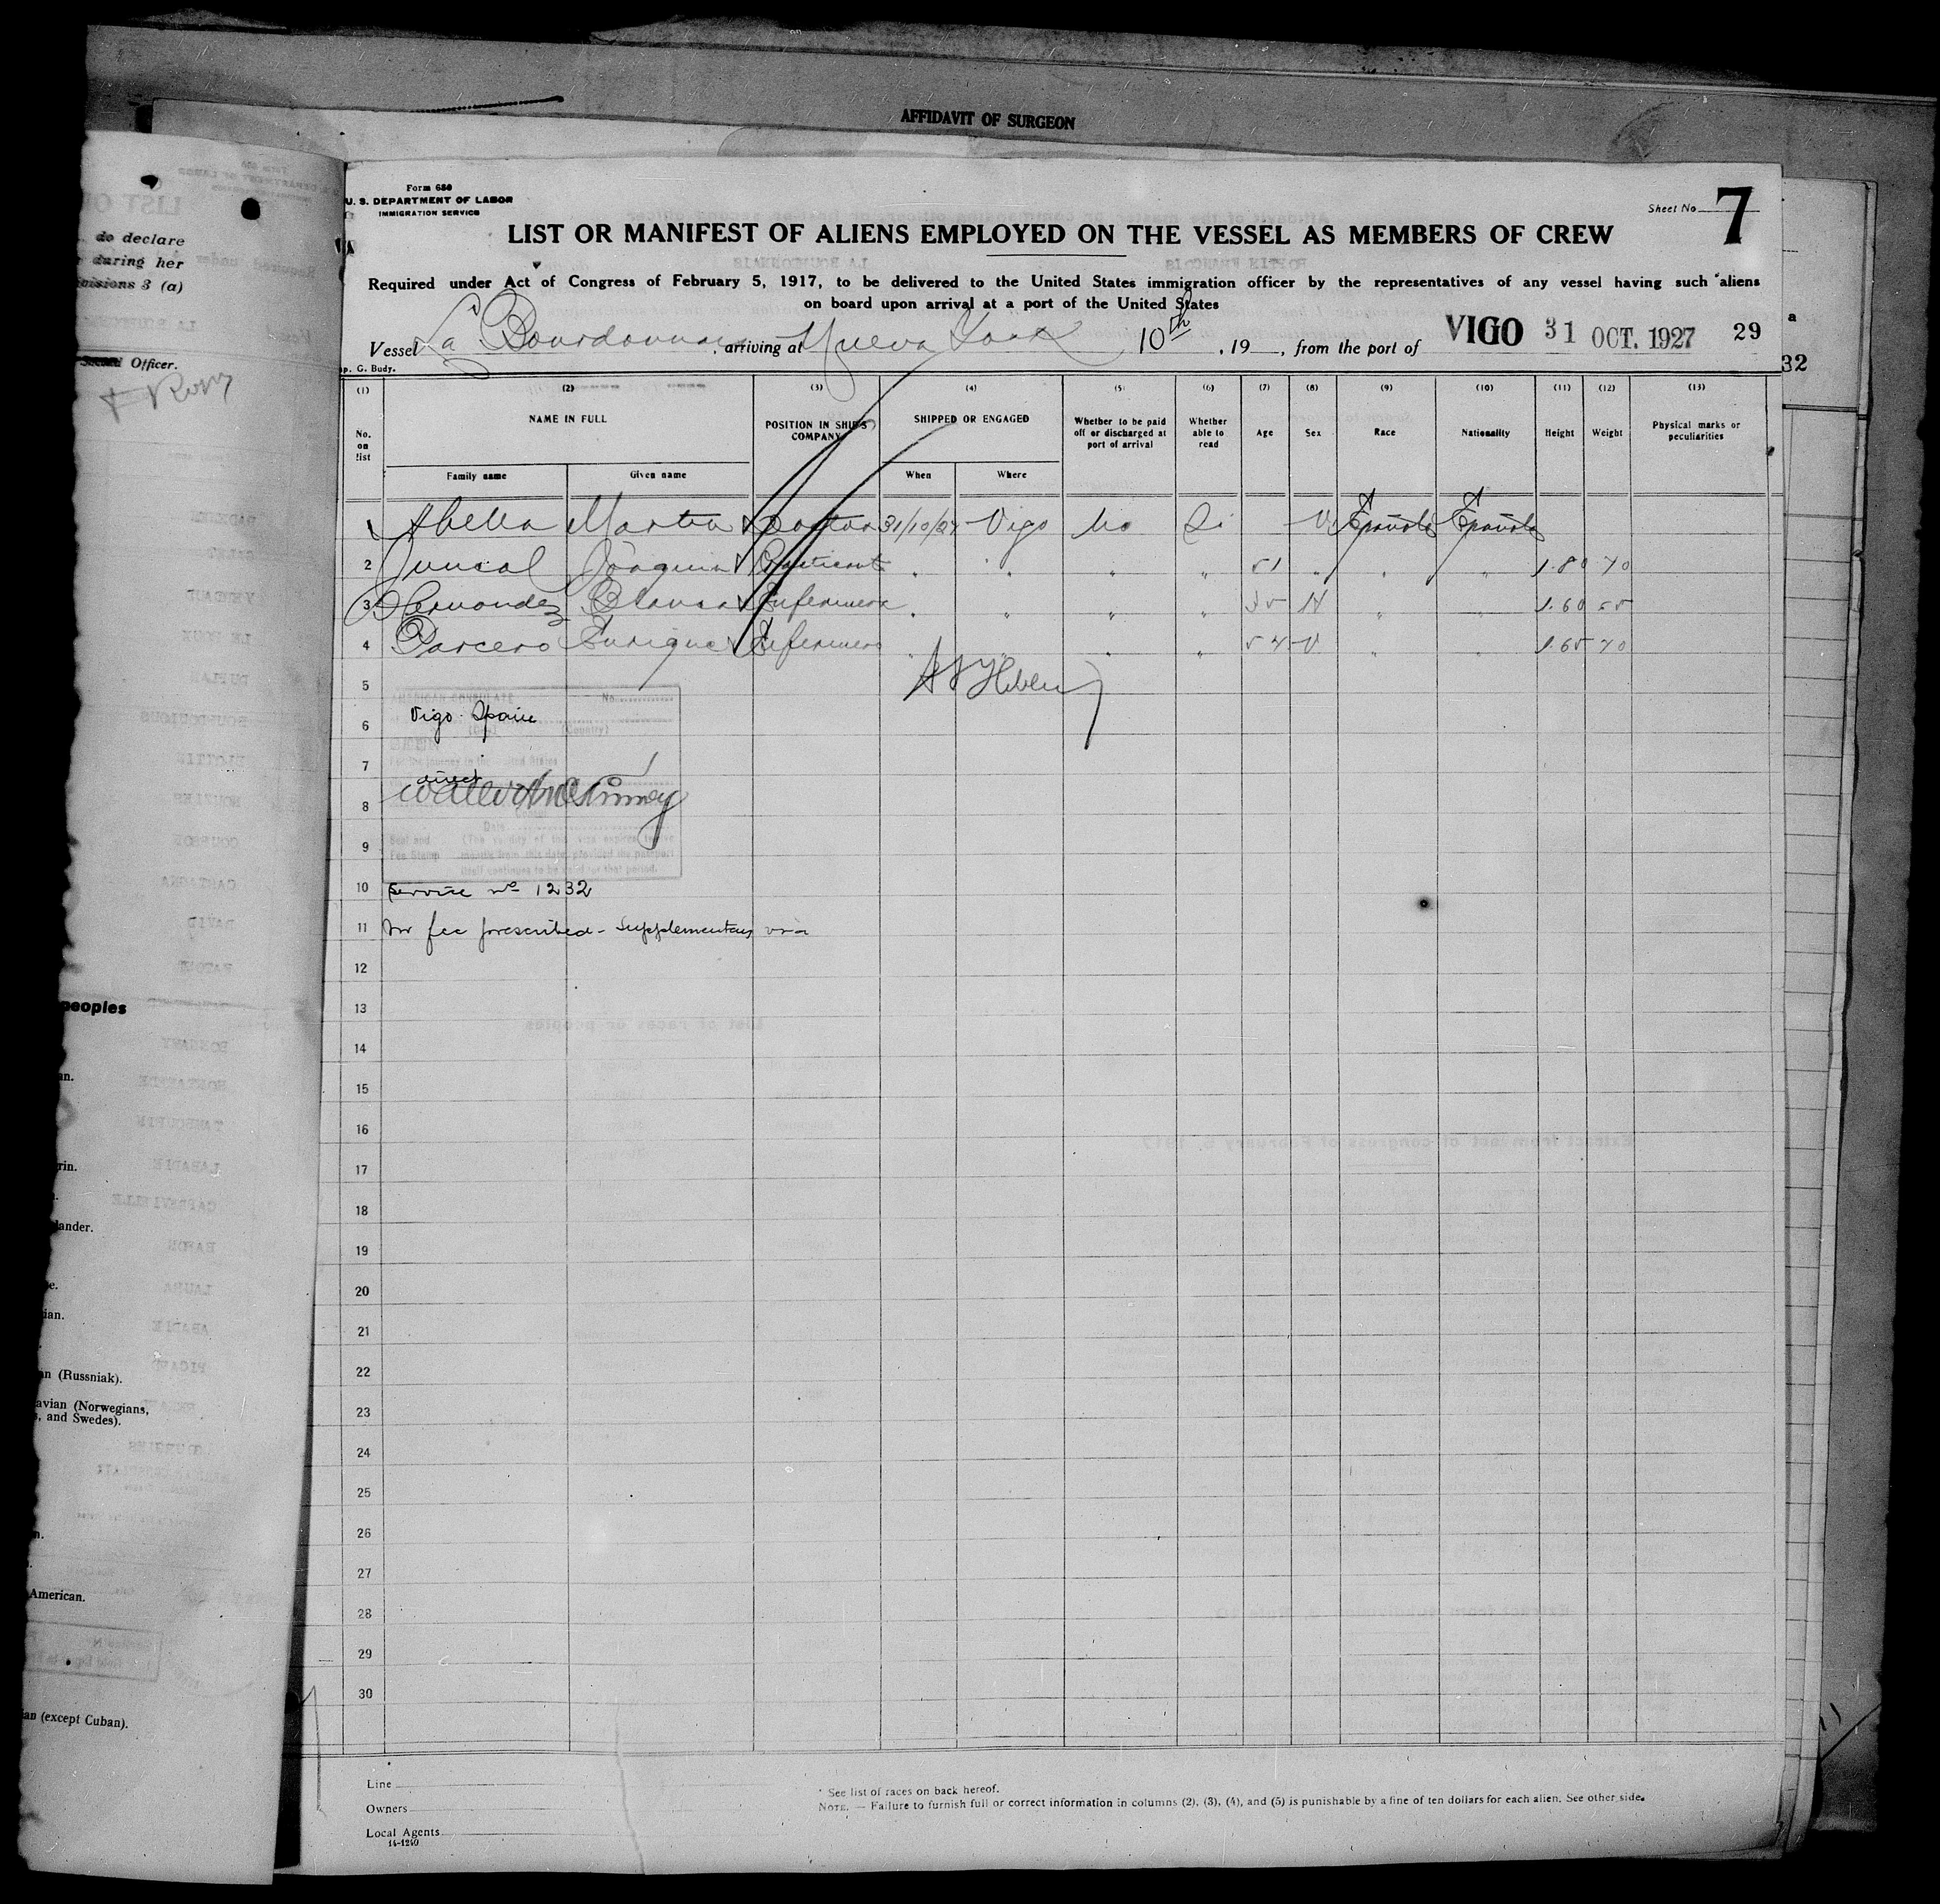 AFFIDAVIT OF SURGEON
do declare
during her
visions 3 (a)
Officer.
peoples
an.
rin.
lander.
ian.
an (Russniak).
avian (Norwegians,
, and Swedes).
American.
an (except Cuban).
Form 680
U. S. DEPARTMENT OF LABOR
IMMIGRATION SERVICE
Sheet No 7
LIST OR MANIFEST OF ALIENS EMPLOYED ON THE VESSEL AS MEMBERS OF CREW
Required under Act of Congress of February 5, 1917, to be delivered to the United States immigration officer by the representatives of any vessel having such aliens
on board upon arrival at a port of the United States
Vessel La Bourdonnais, arriving at Nueva York 10th, 19, from the port of VIGO 31 OCT. 1927 29
p. G. Budy.
a
32
(1) (2) (3) (4) (5) (6) (7) (8) (9) (10) (11) (12) (13)
No. on list
NAME IN FULL
Family name Given name
POSITION IN SHIP'S COMPANY
SHIPPED OR ENGAGED
When Where
Whether to be paid off or discharged at port of arrival
Whether able to read
Age Sex Race Nationality Height Weight
Physical marks or peculiarities
1 Abella 31/10/27 Vigo No Si V. Española Española
2 Juncal Joaquin Practicante " " " " 51 " " " 1.80 70
3 Hernandez Blanca Enfermera " " " " 35 H " " 1.60 55
4 Parcero Enrique Enfermero " " " " 54 V. " " 1.65 70
5
AMERICAN CONSULATE No.
6 Vigo Spain
(Country)
For the journey to the United States
7
direct
8
Consul
Date
9 Seal and Fee Stamp (The validity of this visa expires twelve
months from this date, provided the passport
itself continues to be valid for that period.
10 Service No 1232
11 No fee prescribed - Supplementary visa
12
13
14
15
16
17
18
19
20
21
22
23
24
25
26
27
28
29
30
Line
Owners
Local Agents
14-1240
* See list of races on back hereof.
NOTE. — Failure to furnish full or correct information in columns (2), (3), (4), and (5) is punishable by a fine of ten dollars for each alien. See other side.